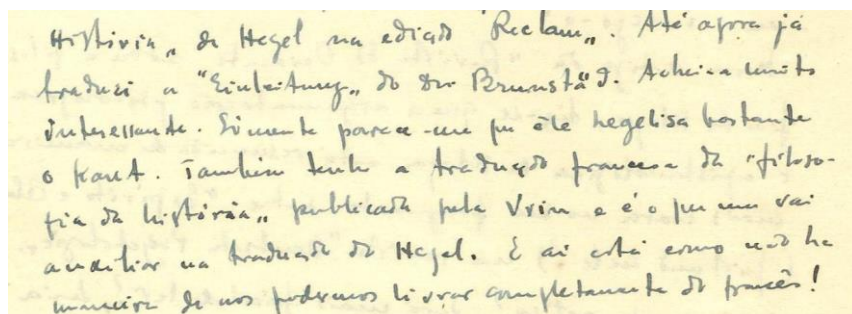 História„ de Hegel na edição "Reclam„. Até agora já
traduzi a "Einleitung„ do Dr Brunstäd. Achei-a muito
interessante. Sòmente parece-me que êle hegelisa bastante
o Kant. Também tenho a tradução francesa da "filoso-
fia da história„ publicada pela Vrin e é o que me vai
auxiliar na tradução do Hegel. E aí está como não ha
maneira de nos podermos livrar completamente do francês!